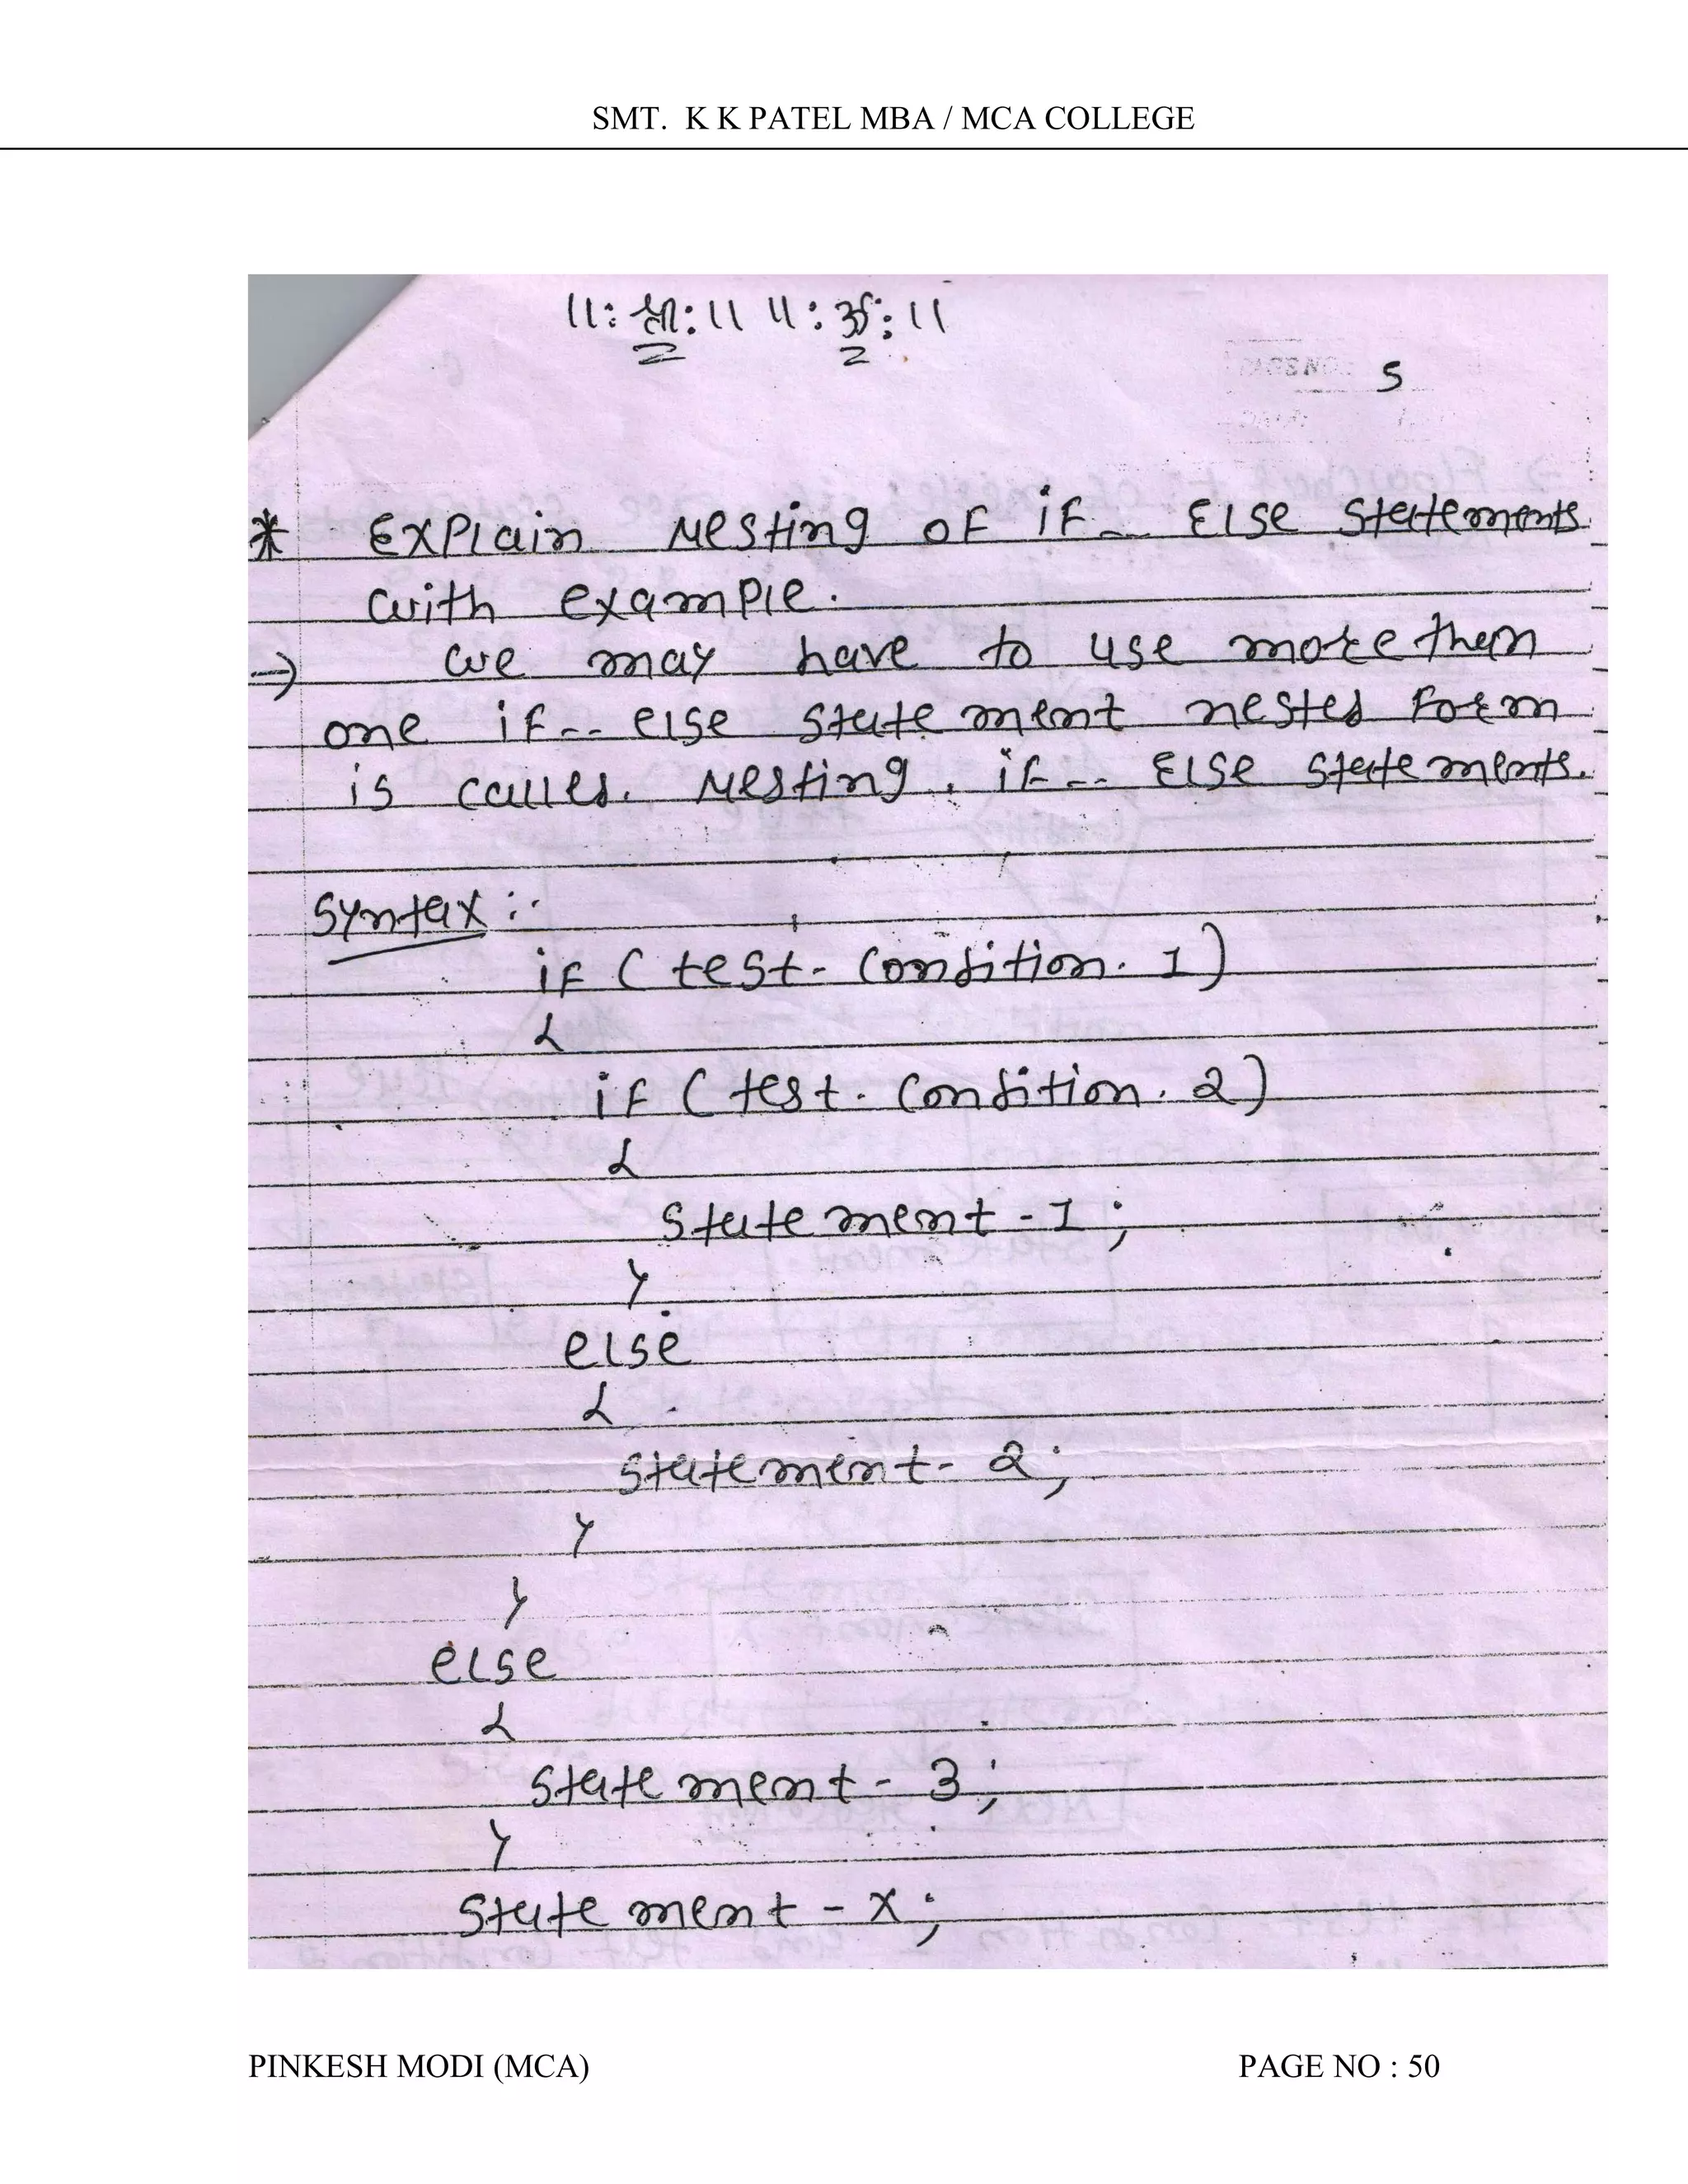 SMT. K K PATEL MBA / MCA COLLEGE
॥: श्री:॥ ॥: ॐ:॥
PAGE NO.: 5
* Explain Nesting of if.. Else Statements
with example.
→ we may have to use more then
one if.. else statement nested form
is called. Nesting. if.. Else statements.
Syntax :-
if ( test- Condition. 1 )
{
if ( test. Condition. 2 )
{
statement - 1 ;
}
else
{
statement - 2 ;
}
}
else
{
statement - 3 ;
}
statement - x ;
PINKESH MODI (MCA) PAGE NO : 50